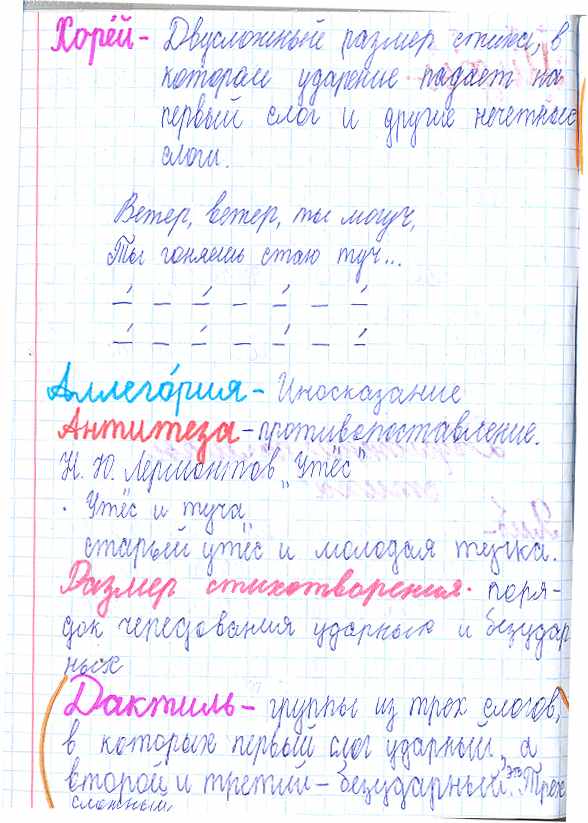 Хоре́й - Двусложный размер стиха, в
котором ударенье падает на
первый слог и другие нечетные
слоги.
Ветер, ветер, ты могуч,
Ты гоняешь стаю туч...
Аллего́рия - Иносказание
Антитеза - противопоставление.
М. Ю. Лермонтов "Утёс"
· Утёс и туча
старый утёс и молодая тучка.
Размер стихотворения - поря-
док чередования ударных и безудар
ных
(Дактиль - группы из трех слогов,
в которых первый слог ударный, а
второй и третий - безударный. это Трех
сложный